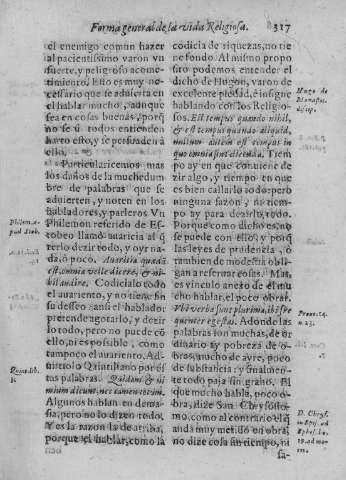 Forma general de la vida Religiosa. 317
el enemigo comun hazer
al pacientissimo varon vn
fuerte, y peligroso acome-
timiento. Ello es muy ne-
cessario que se aduierta en
el hablar mucho, aunque
sea en cosas buenas, porq̃
no se ũ todos entienden
harto esto, y se persuaden à
ello.
Particularicemos mas
los daños de la muchedum
bre de palabras que se
aduierten, y noten en los
habladores, y parleros Vn
Philemon referido de Es-
tobeo llamò auaricia al q̃
rerlo dezir todo, y oyr na-
da, ò poco. Auaritia quædã
est, omnia velle dicere, & ni-
hil audire. Codicialo todo
el auariento, y no tiene fin
su desseo: ansi el hablador
pretende agotarlo, y dezir
lo todo, pero no puede cõ
ello, ni es possible, como
tampoco el auariento. Ad-
uirtiolo Quintiliano por es
tas palabras. Quidam & ni
mium dicunt, nec tamen totum.
Algunos hablan en dema-
sia, pero no lo dizen todo.
Y es la razon la de arriba,
porque el hablar, como la
Philem. a-
pud Stob.
Quint. lib.
codicia de riquezas, no tie
ne fondo. Al mismo propo
sito podemos entender el
dicho de Hugon, varon de
excelente piedad, è insigne
hablando con los Religio-
sos. Est tempus quando nihil,
& est tempus quando aliquid,
nullum autem est tempus in
quo omnia sint dicenda. Tiem
po ay en que conuiene de
zir algo, y tiempo en que
es bien callarlo todo: pero
ninguna sazon, ni tiem-
po ay para dezirlo todo.
Porque como dicho es, no
se puede con ello, y porq̃
las leyes de prudencia, ò
tambien de modestia obli-
gan a reseruar cosas. Mas,
es vinculo anexo de el mu
cho hablar, el poco obrar.
Vbi verba sunt plurima, ibi fre
quenter egestas. Adonde las
palabras son muchas, de or
dinario ay pobreza de o-
bras, mucho de ayre, poco
de substancia; y finalmen-
te todo paja sin grano. El
que mucho habla, poco o-
bra, dize San Chrysosto-
mo: como al contrario el q̃
anda muy metido en obras,
no dize cosa sin tiempo, ni
fa-
Hugo de
Prouer. 14.
n. 23.
D. Chrys.
in Epis. ad